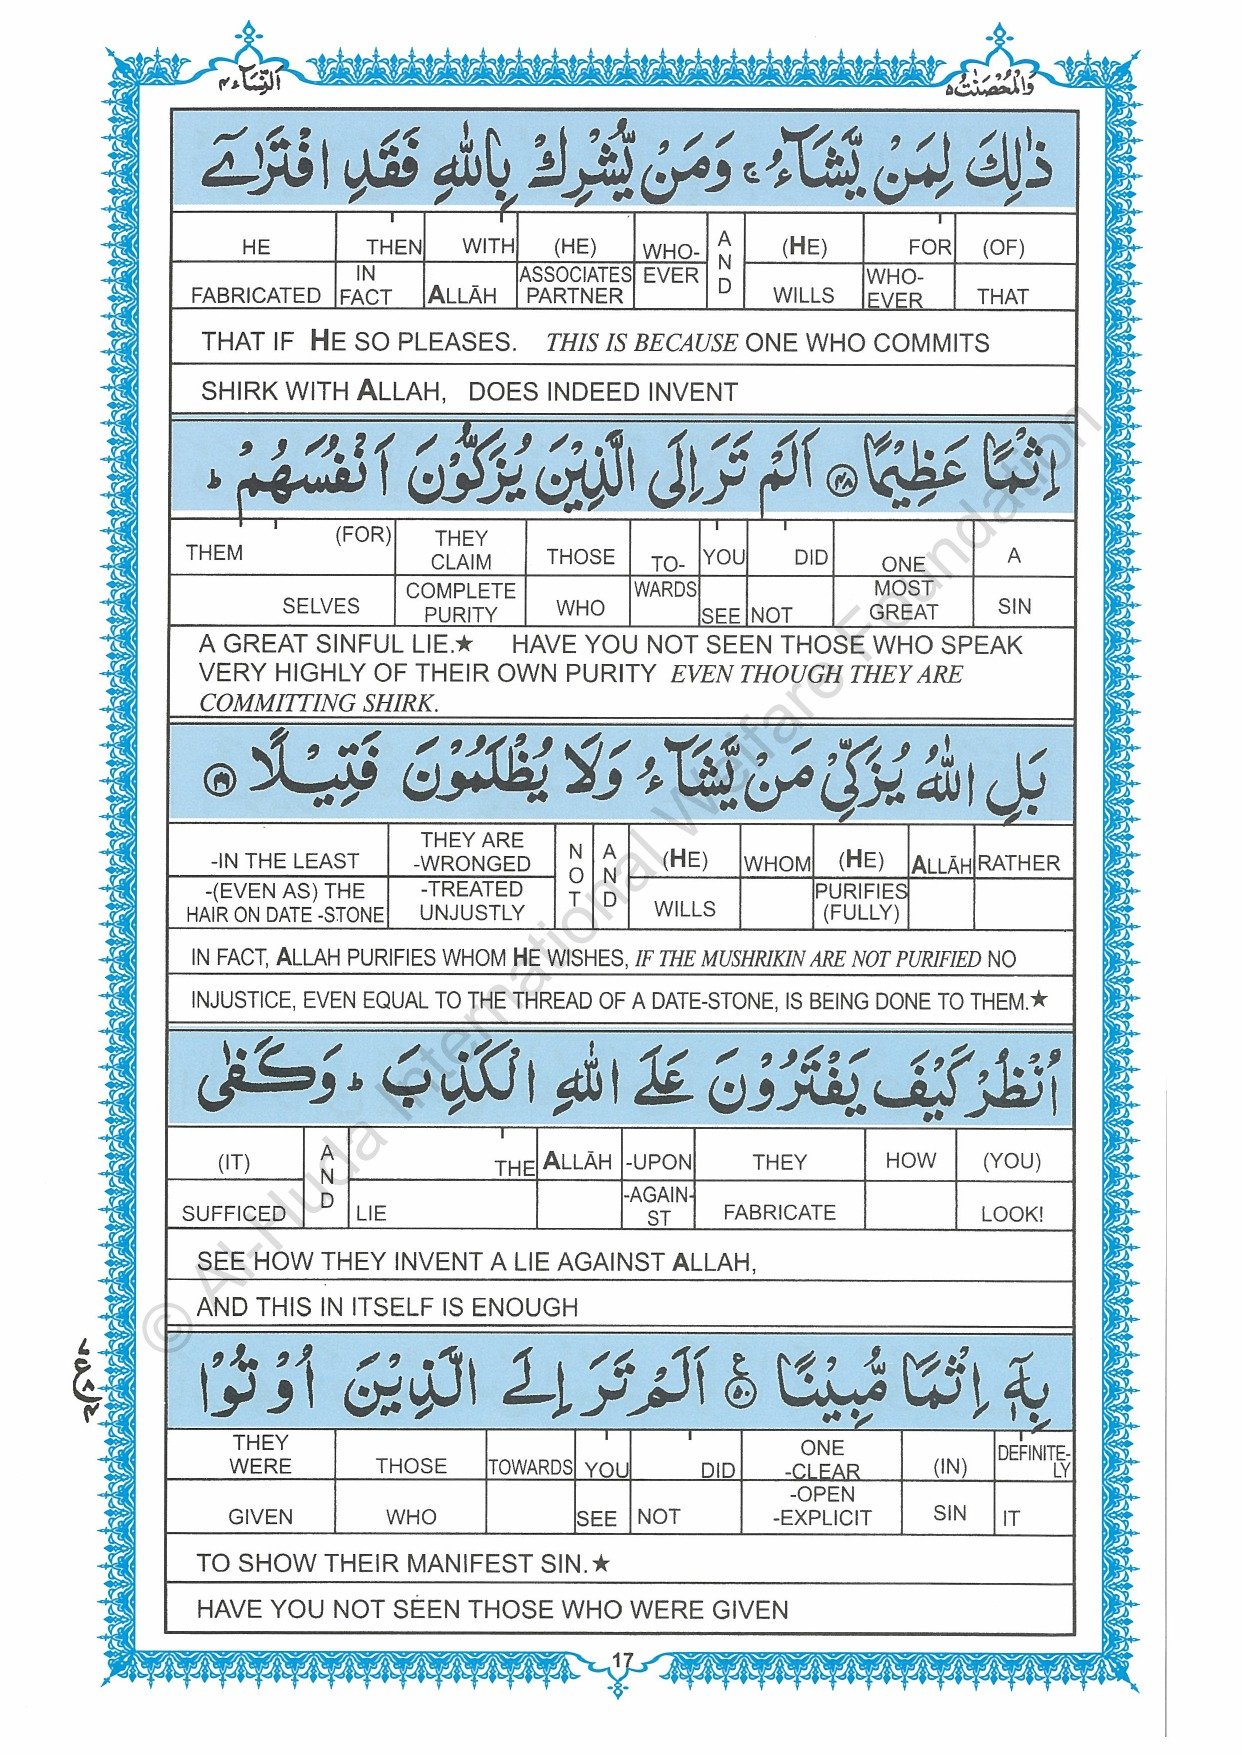 وَالْمُحْصَنٰتُ ۵
اَلنِّسَآء ۴
ذٰلِكَ لِمَنْ يَّشَآءُ ۚ وَمَنْ يُّشْرِكْ بِاللّٰهِ فَقَدِ افْتَرٰٓى
HE THEN WITH (HE) WHO- AND (HE) FOR (OF)
FABRICATED IN FACT ALLĀH ASSOCIATES PARTNER EVER WILLS WHO-EVER THAT
THAT IF HE SO PLEASES. THIS IS BECAUSE ONE WHO COMMITS
SHIRK WITH ALLAH, DOES INDEED INVENT
اِثْمًا عَظِيْمًا ۴۸ اَلَمْ تَرَ اِلَى الَّذِيْنَ يُزَكُّوْنَ اَنْفُسَهُمْ ؕ
THEM (FOR) THEY CLAIM THOSE TO- YOU DID ONE A
SELVES COMPLETE PURITY WHO WARDS SEE NOT MOST GREAT SIN
A GREAT SINFUL LIE.★ HAVE YOU NOT SEEN THOSE WHO SPEAK
VERY HIGHLY OF THEIR OWN PURITY EVEN THOUGH THEY ARE
COMMITTING SHIRK.
بَلِ اللّٰهُ يُزَكِّىْ مَنْ يَّشَآءُ وَلَا يُظْلَمُوْنَ فَتِيْلًا ۴۹
-IN THE LEAST THEY ARE -WRONGED NOT AND (HE) WHOM (HE) ALLĀH RATHER
-(EVEN AS) THE HAIR ON DATE -STONE -TREATED UNJUSTLY WILLS PURIFIES (FULLY)
IN FACT, ALLAH PURIFIES WHOM HE WISHES, IF THE MUSHRIKIN ARE NOT PURIFIED NO
INJUSTICE, EVEN EQUAL TO THE THREAD OF A DATE-STONE, IS BEING DONE TO THEM.★
اُنْظُرْ كَيْفَ يَفْتَرُوْنَ عَلَى اللّٰهِ الْكَذِبَ ؕ وَكَفٰى
(IT) AND THE ALLĀH -UPON THEY HOW (YOU)
SUFFICED LIE -AGAIN-ST FABRICATE LOOK!
SEE HOW THEY INVENT A LIE AGAINST ALLAH,
AND THIS IN ITSELF IS ENOUGH
بِهٖٓ اِثْمًا مُّبِيْنًا ۵۰ ع اَلَمْ تَرَ اِلَى الَّذِيْنَ اُوْتُوْا
THEY WERE THOSE TOWARDS YOU DID ONE -CLEAR (IN) DEFINITE-LY
GIVEN WHO SEE NOT -OPEN -EXPLICIT SIN IT
TO SHOW THEIR MANIFEST SIN.★
HAVE YOU NOT SEEN THOSE WHO WERE GIVEN
17
© Al-Huda International Welfare Foundation